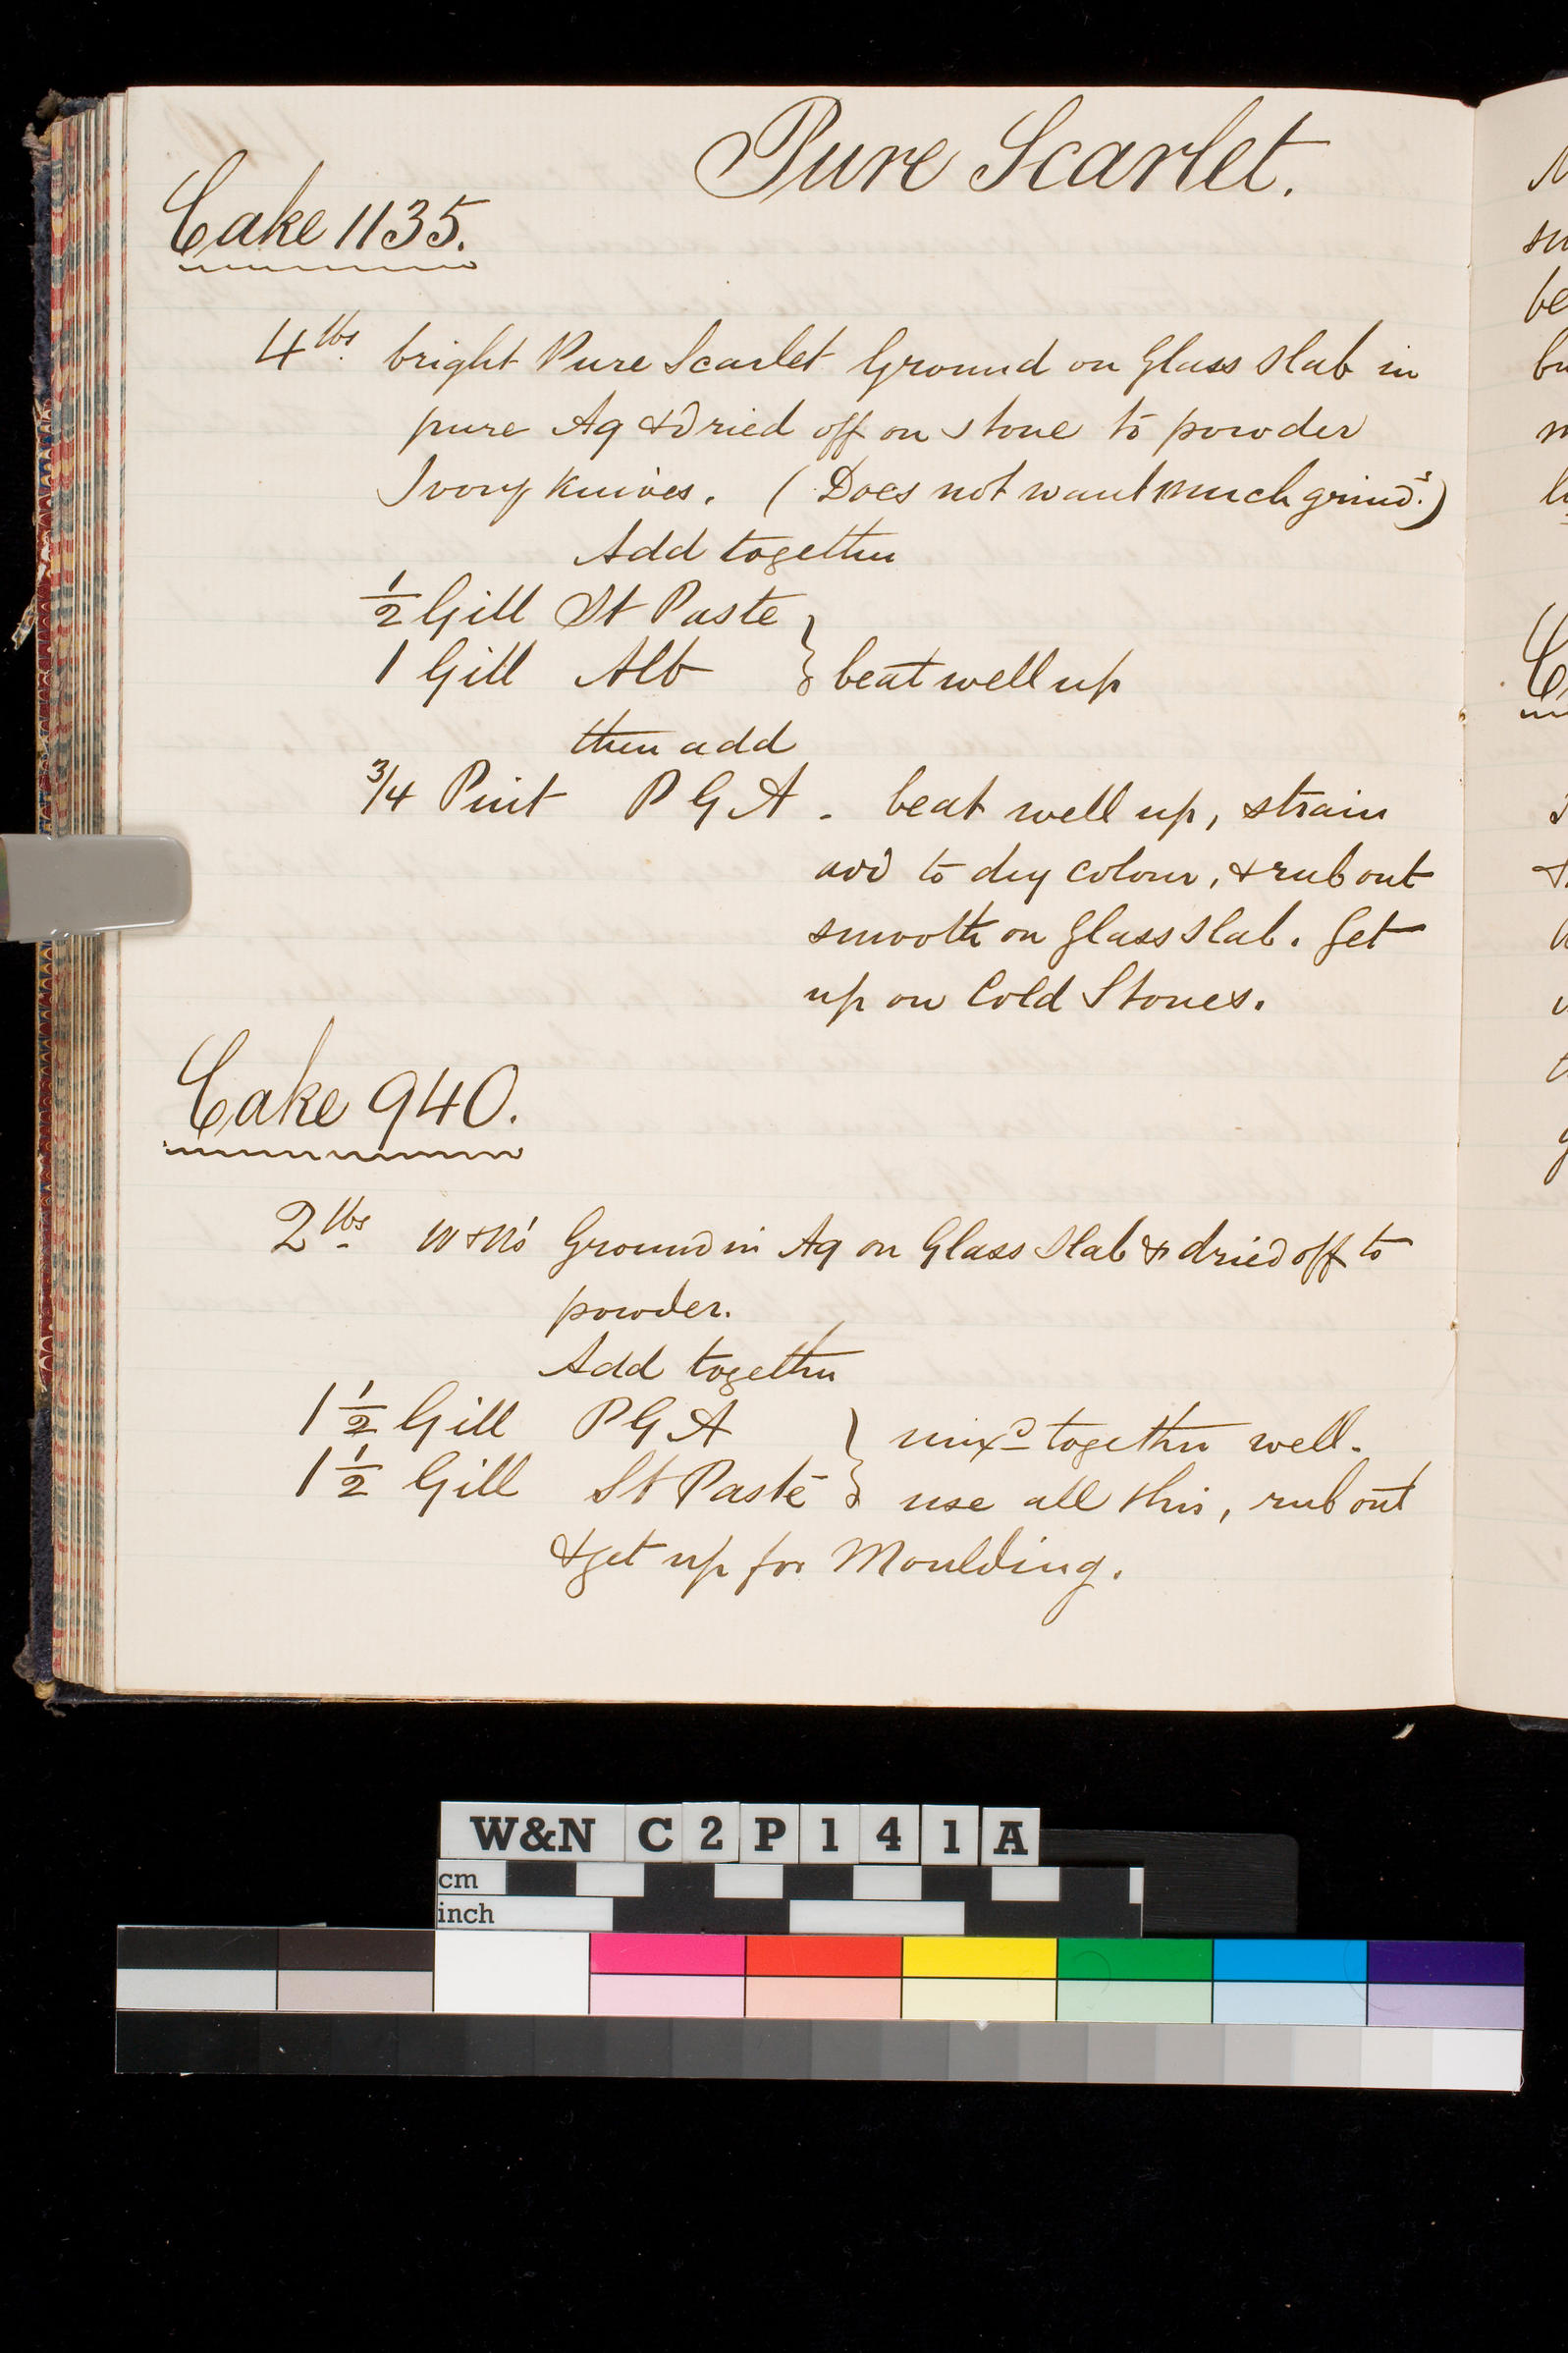 Pure Scarlet.
Cake 1135.
4 lbs. bright Pure Scarlet Ground on Glass Slab in
pure Aq & dried off on stone to powder
Ivory knives. (Does not want much grindg.)
Add together
½ Gill St Paste
1 Gill Alb } beat well up
then add
3/4 Pint P G A - beat well up, strain
add to dry colour, & rub out
smooth on Glass Slab. Get
up on Cold Stones.
Cake 940.
2 lbs W&N's Ground in Aq on Glass Slab & dried off to
powder.
Add together
1 ½ Gill P G A } mixd together well.
1 ½ Gill St Paste } use all this, rub out
& get up for Moulding.
W&N C2P141A
cm
inch